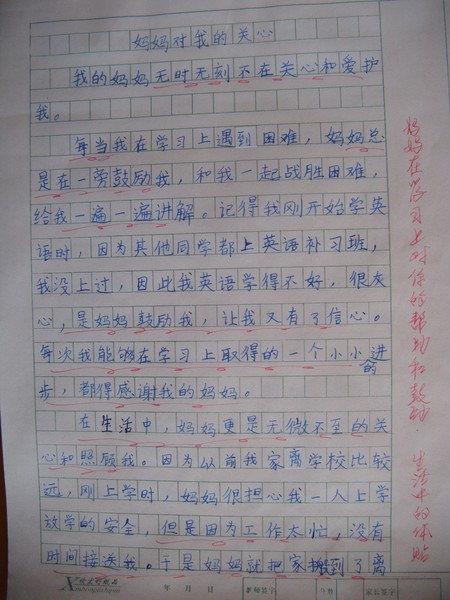 妈妈对我的关心
我的妈妈无时无刻不在关心和爱护
我。
每当我在学习上遇到困难，妈妈总
是在一旁鼓励我，和我一起战胜困难，
给我一遍一遍讲解。记得我刚开始学英
语时，因为其他同学都上英语补习班，
我没上过，因此我英语学得不好，很灰
心，是妈妈鼓励我，让我又有了信心。
每次我能够在学习上取得的一个小小的进
步，都得感谢我的妈妈。
在生活中，妈妈更是无微不至的关
心和照顾我。因为以前我家离学校比较
远，刚上学时，妈妈很担心我一人上学
放学的安全，但是因为工作太忙，没有
时间接送我。于是妈妈就把家搬到了离
年 月 日
妈妈在学习上对你的帮助和鼓励，生活中的体贴